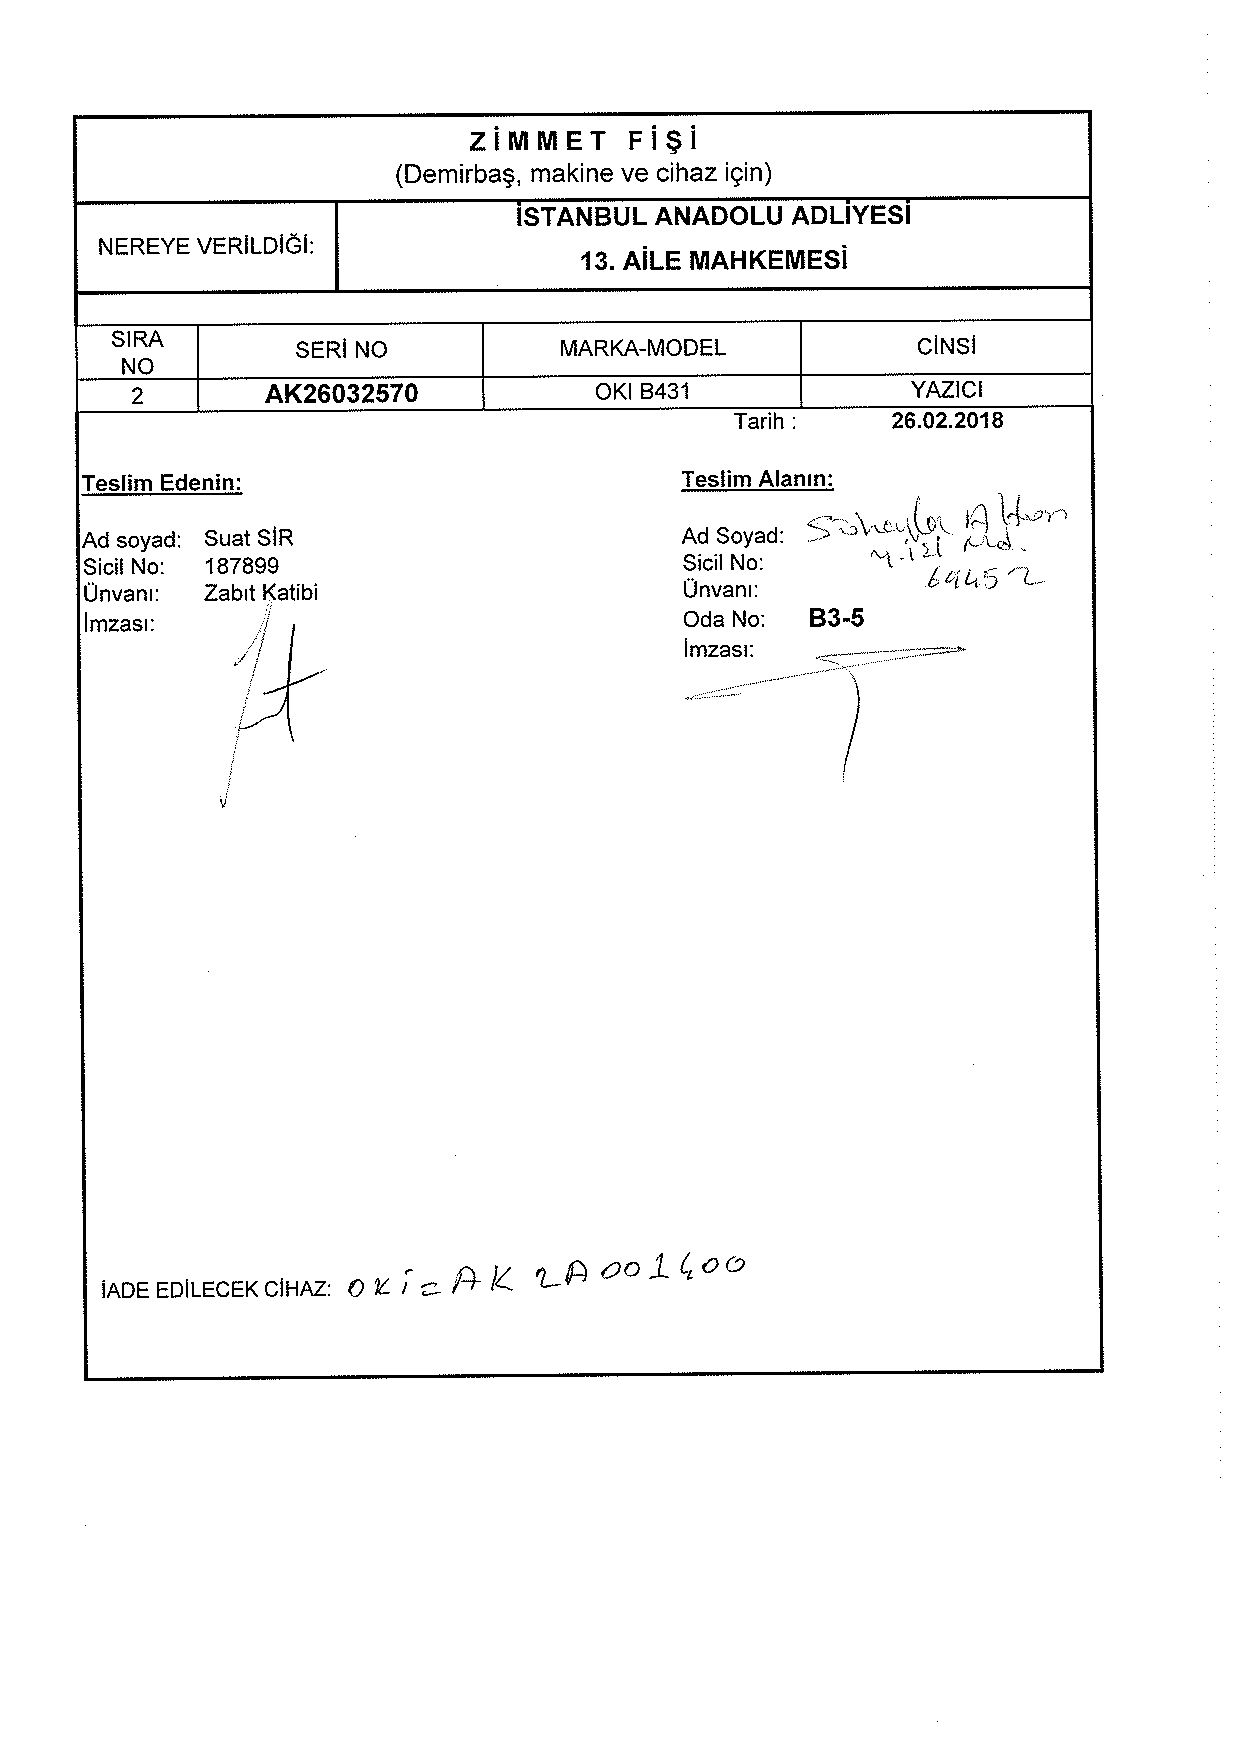 ZİMMET FİŞİ
(Demirbaş, makine ve cihaz için)
NEREYE VERİLDİĞİ:
İSTANBUL ANADOLU ADLİYESİ
13. AİLE MAHKEMESİ
SIRA NO SERİ NO MARKA-MODEL CİNSİ
2 AK26032570 OKI B431 YAZICI
Tarih : 26.02.2018
Teslim Edenin: Teslim Alanın:
Ad soyad: Suat SİR
Sicil No: 187899
Ünvanı: Zabıt Katibi
İmzası:
Ad Soyad: Süheyla
Md.
Sicil No: 69452
Ünvanı:
Oda No: B3-5
İmzası:
İADE EDİLECEK CİHAZ: OKİ = AK2A001400